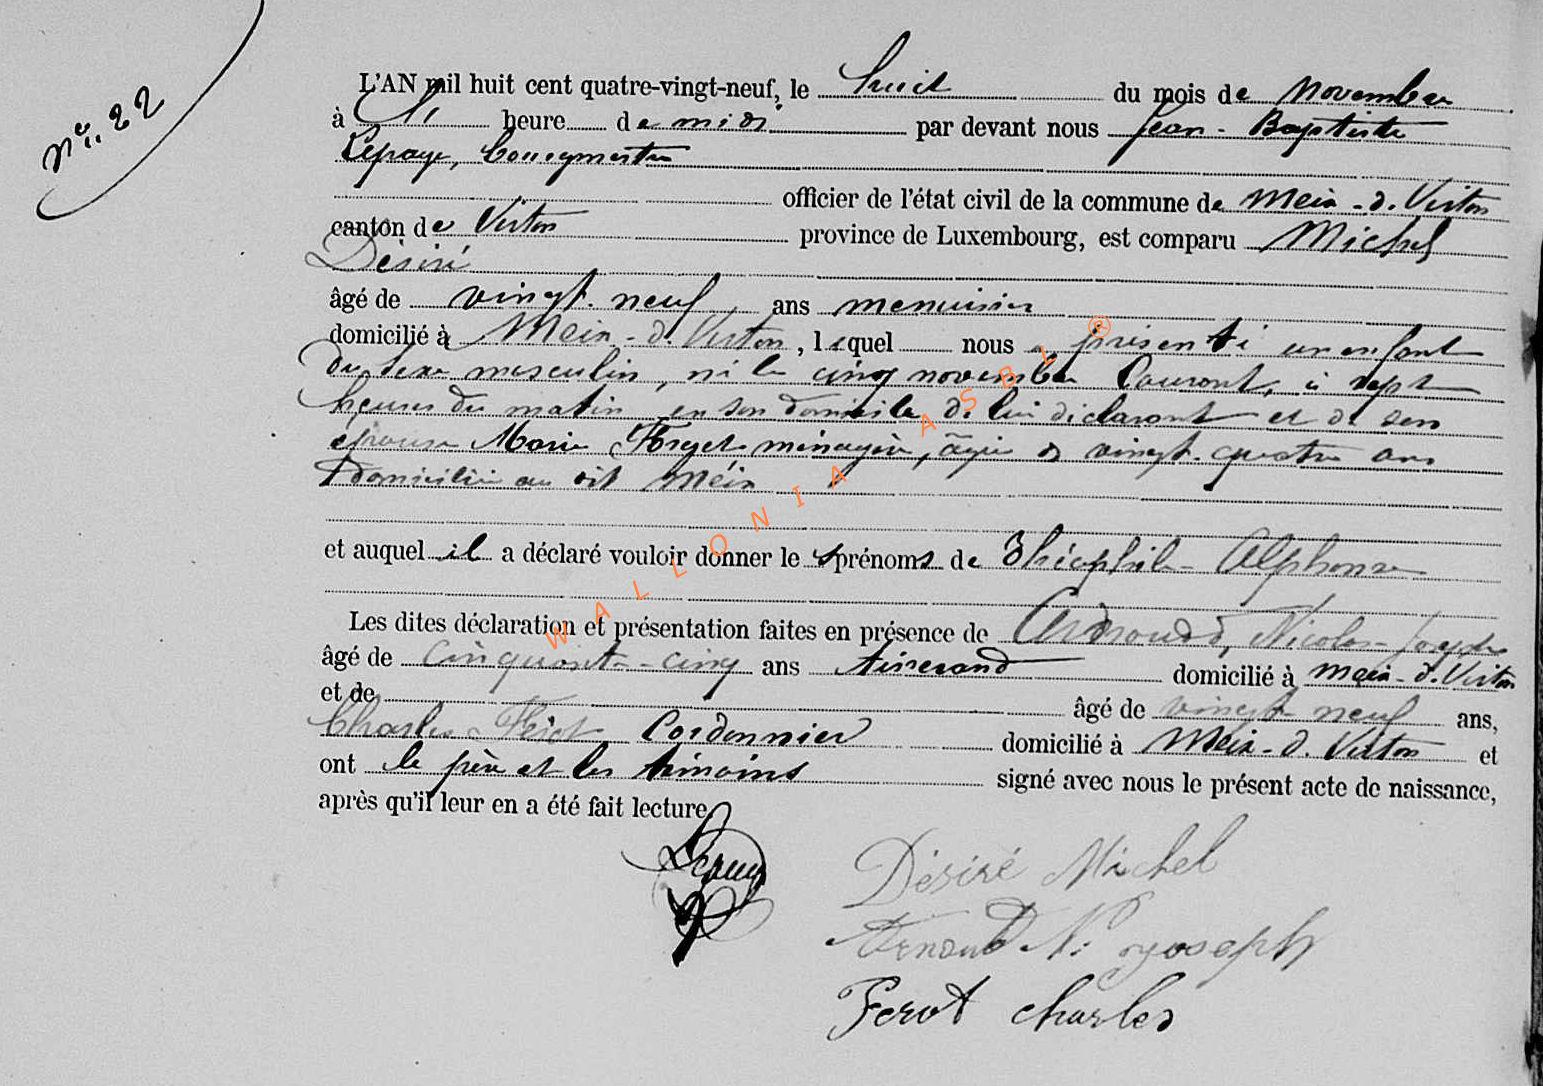 N° 22
L'AN mil huit cent quatre-vingt-neuf, le huit du mois de novembre
à heure de midi par devant nous Jean-Baptiste
Lepage, bourgmestre
officier de l'état civil de la commune de Meix-d.Virton
canton de Virton province de Luxembourg, est comparu Michel
Désiré
âgé de vingt-neuf ans menuisier
domicilié à Meix-d.Virton, lequel nous a présenté un enfant
du sexe masculin, né le cinq novembre courant, à sept
heures du matin en son domicile de lui déclarant et de son
épouse Marie Forget ménagère, âgée de vingt-quatre ans
domiciliée au dit Meix
et auquel il a déclaré vouloir donner le sprénoms de Théophile-Alphonse
Les dites déclaration et présentation faites en présence de Nicolas-Joseph
âgé de cinquante-cinq ans tisserand domicilié à Meix-d.Virton
et de âgé de vingt neuf ans,
Charles Férot Cordonnier domicilié à Meix-d.Virton et
ont le père et les témoins signé avec nous le présent acte de naissance,
après qu'il leur en a été fait lecture
Désiré Michel
Arnould N. Joseph
Ferot Charles
WALLONIA ASBL ®